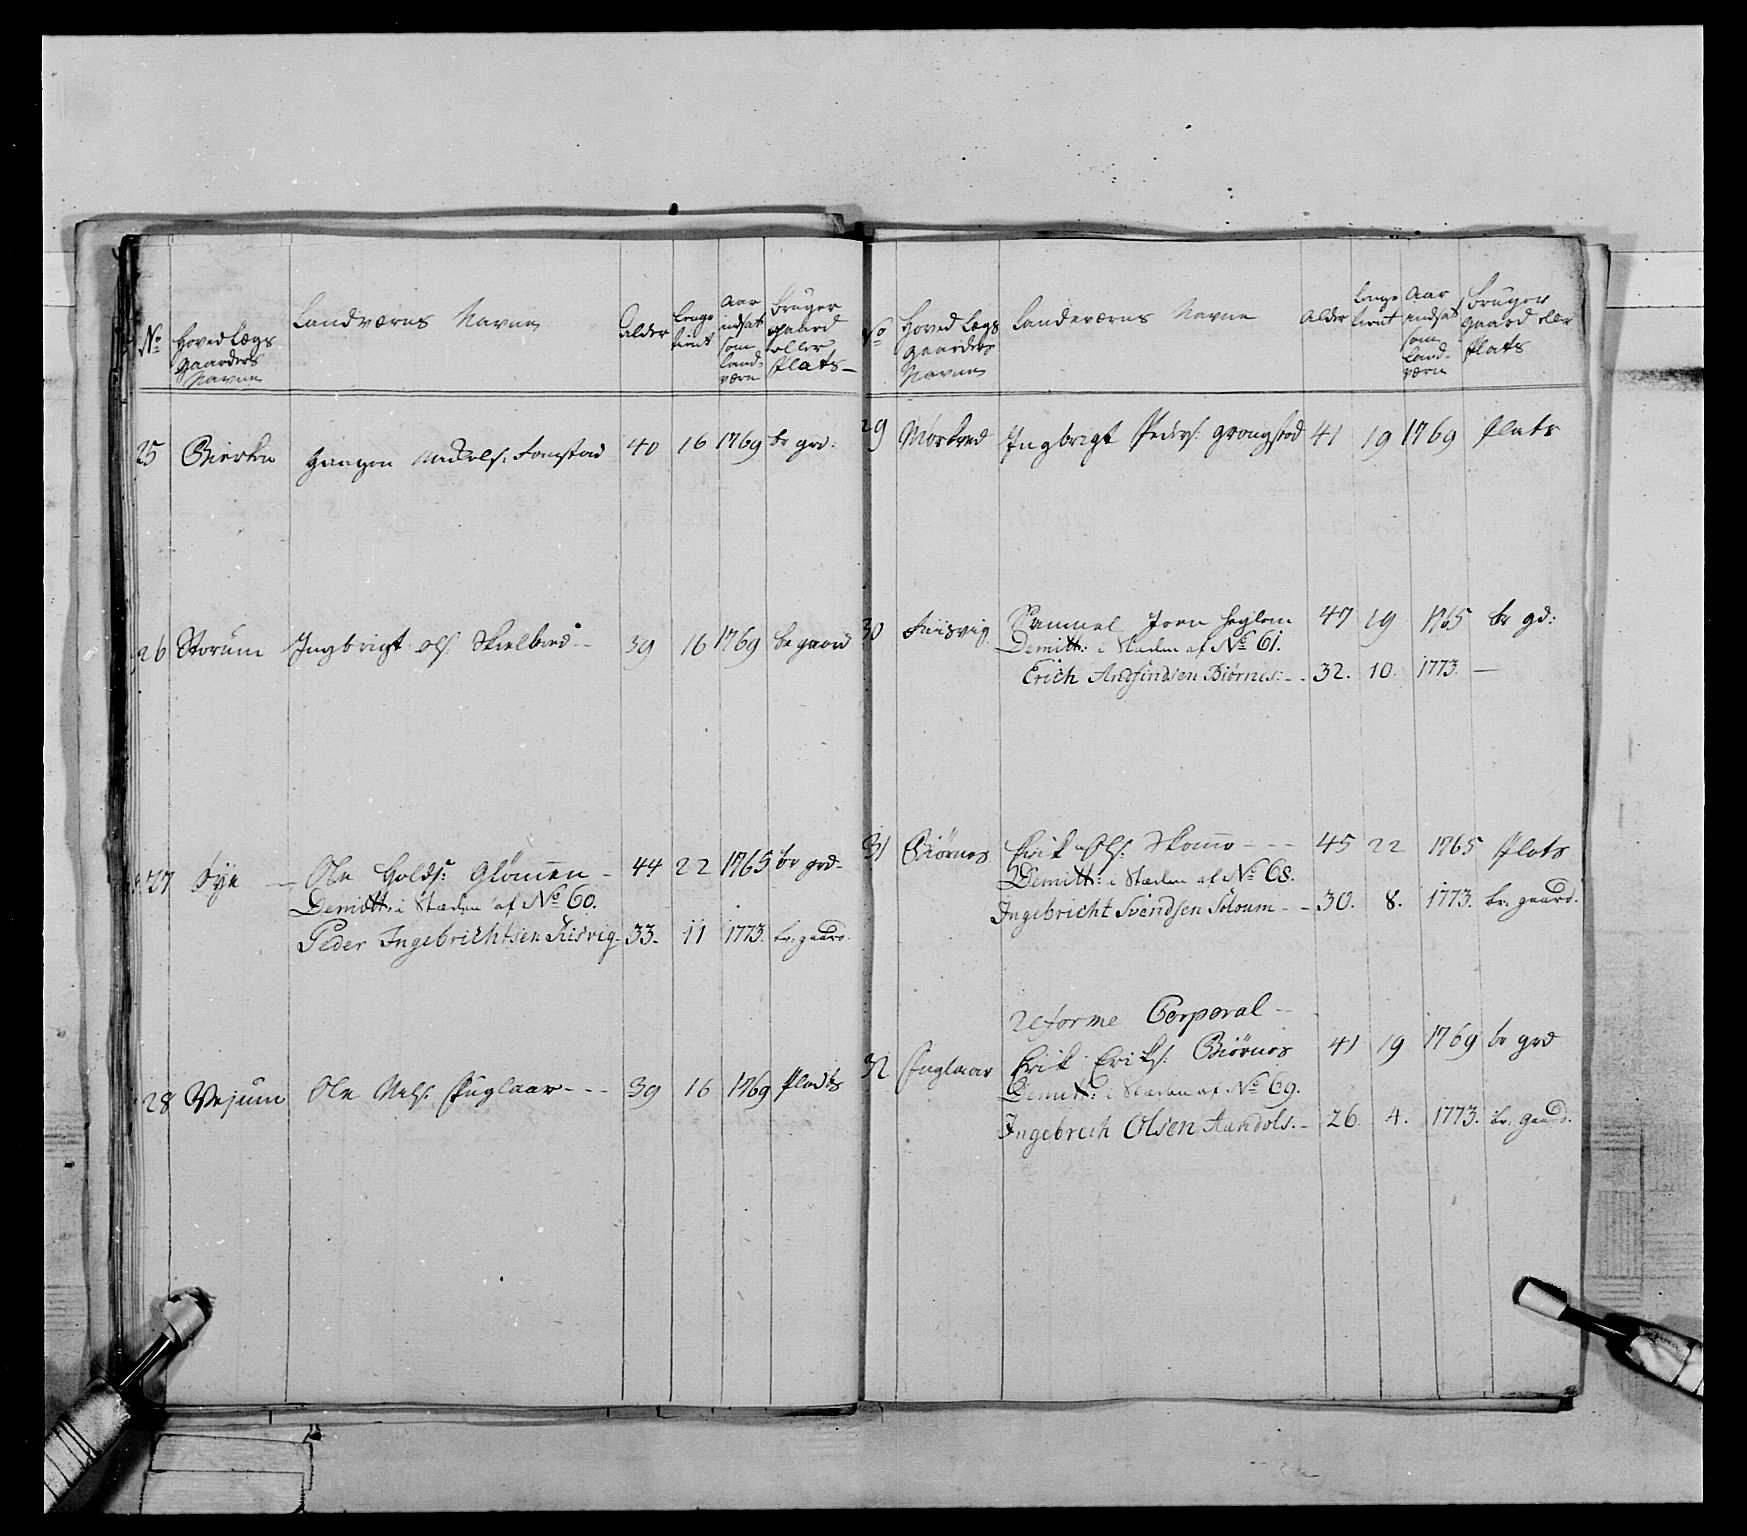 No Hoved Lægs Gaarders Navne Landværns Navne Alder Lenge tient Aar indsat som Land-værn bruger gaard eller Plats
25 Bierken Haagen Fomstad 40 16 1769 br grd:
26 Storum Ingbrigt Ols: Skielbred 39 16 1769 br gaard
27 Sye Ole Holds: Glömen 44 22 1765 br grd
Demitt: i Stæden af No 60.
Peder Ingebrichtsen Kisvig 33. 11 1773. br: gaard.
28 Vejum Ole Nels: Fuglaar 39 16 1769 Plads
No Hoved Lægs gaarders Navne Landeværns Navne Alder Lenge tient Aar indsat som Land-værn bruger gaard eller Plats
29 Mørkved Ingbrigt Peders: Grongstad 41 19 1769 Plats
30 Samuel Joen 47 19 1765 br gd:
Demitt: i Stæden af No 61.
Erich Andfindsen Biørnes: 32. 10. 1773. —
31 Biörnes Erik Ols: Skomo 45 22 1765 Plats
Demitt: i Stæden af No 68.
Ingebricht Svendsen Soloum 30. 8. 1773. br: gaard.
Reforme Corporal
32 Fuglaar Erik Eriks: Biörnes 41 19 1769 br grd
Demitt: i Stæden af No 69.
Ingebrech Olsen Aandols. 26. 4. 1773. br: gaard.